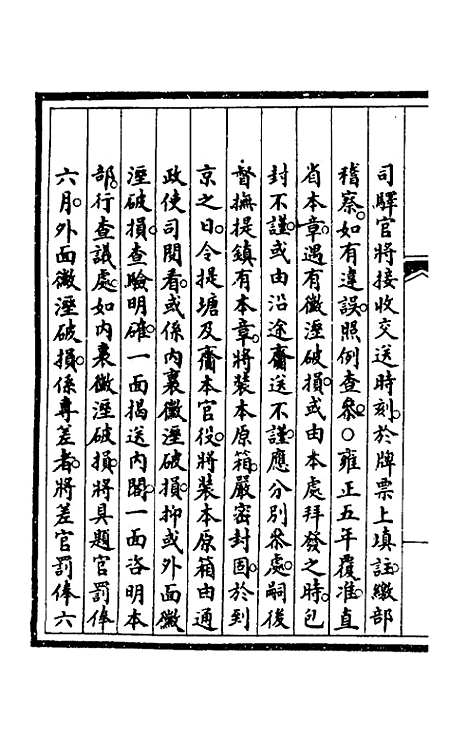 司驛官將接收交送時刻。於牌票上填註。繳部
稽察。如有違誤。照例查叅。○雍正五年覆准。直
省本章。遇有黴溼破損。或由本處拜發之時。包
封不謹。或由沿途齎送不謹。應分別叅處。嗣後
督撫提鎮有本章。將裝本原箱。嚴密封固。於到
京之日。令提塘及齎本官役。將裝本原箱由通
政使司閱看。或係內裹黴溼破損。抑或外面黴
溼破損。查驗明確。一面揭送內閣。一面咨明本
部。行查議處。如內裹黴溼破損。將具題官罰俸
六月。外面黴溼破損。係專差者。將差官罰俸六